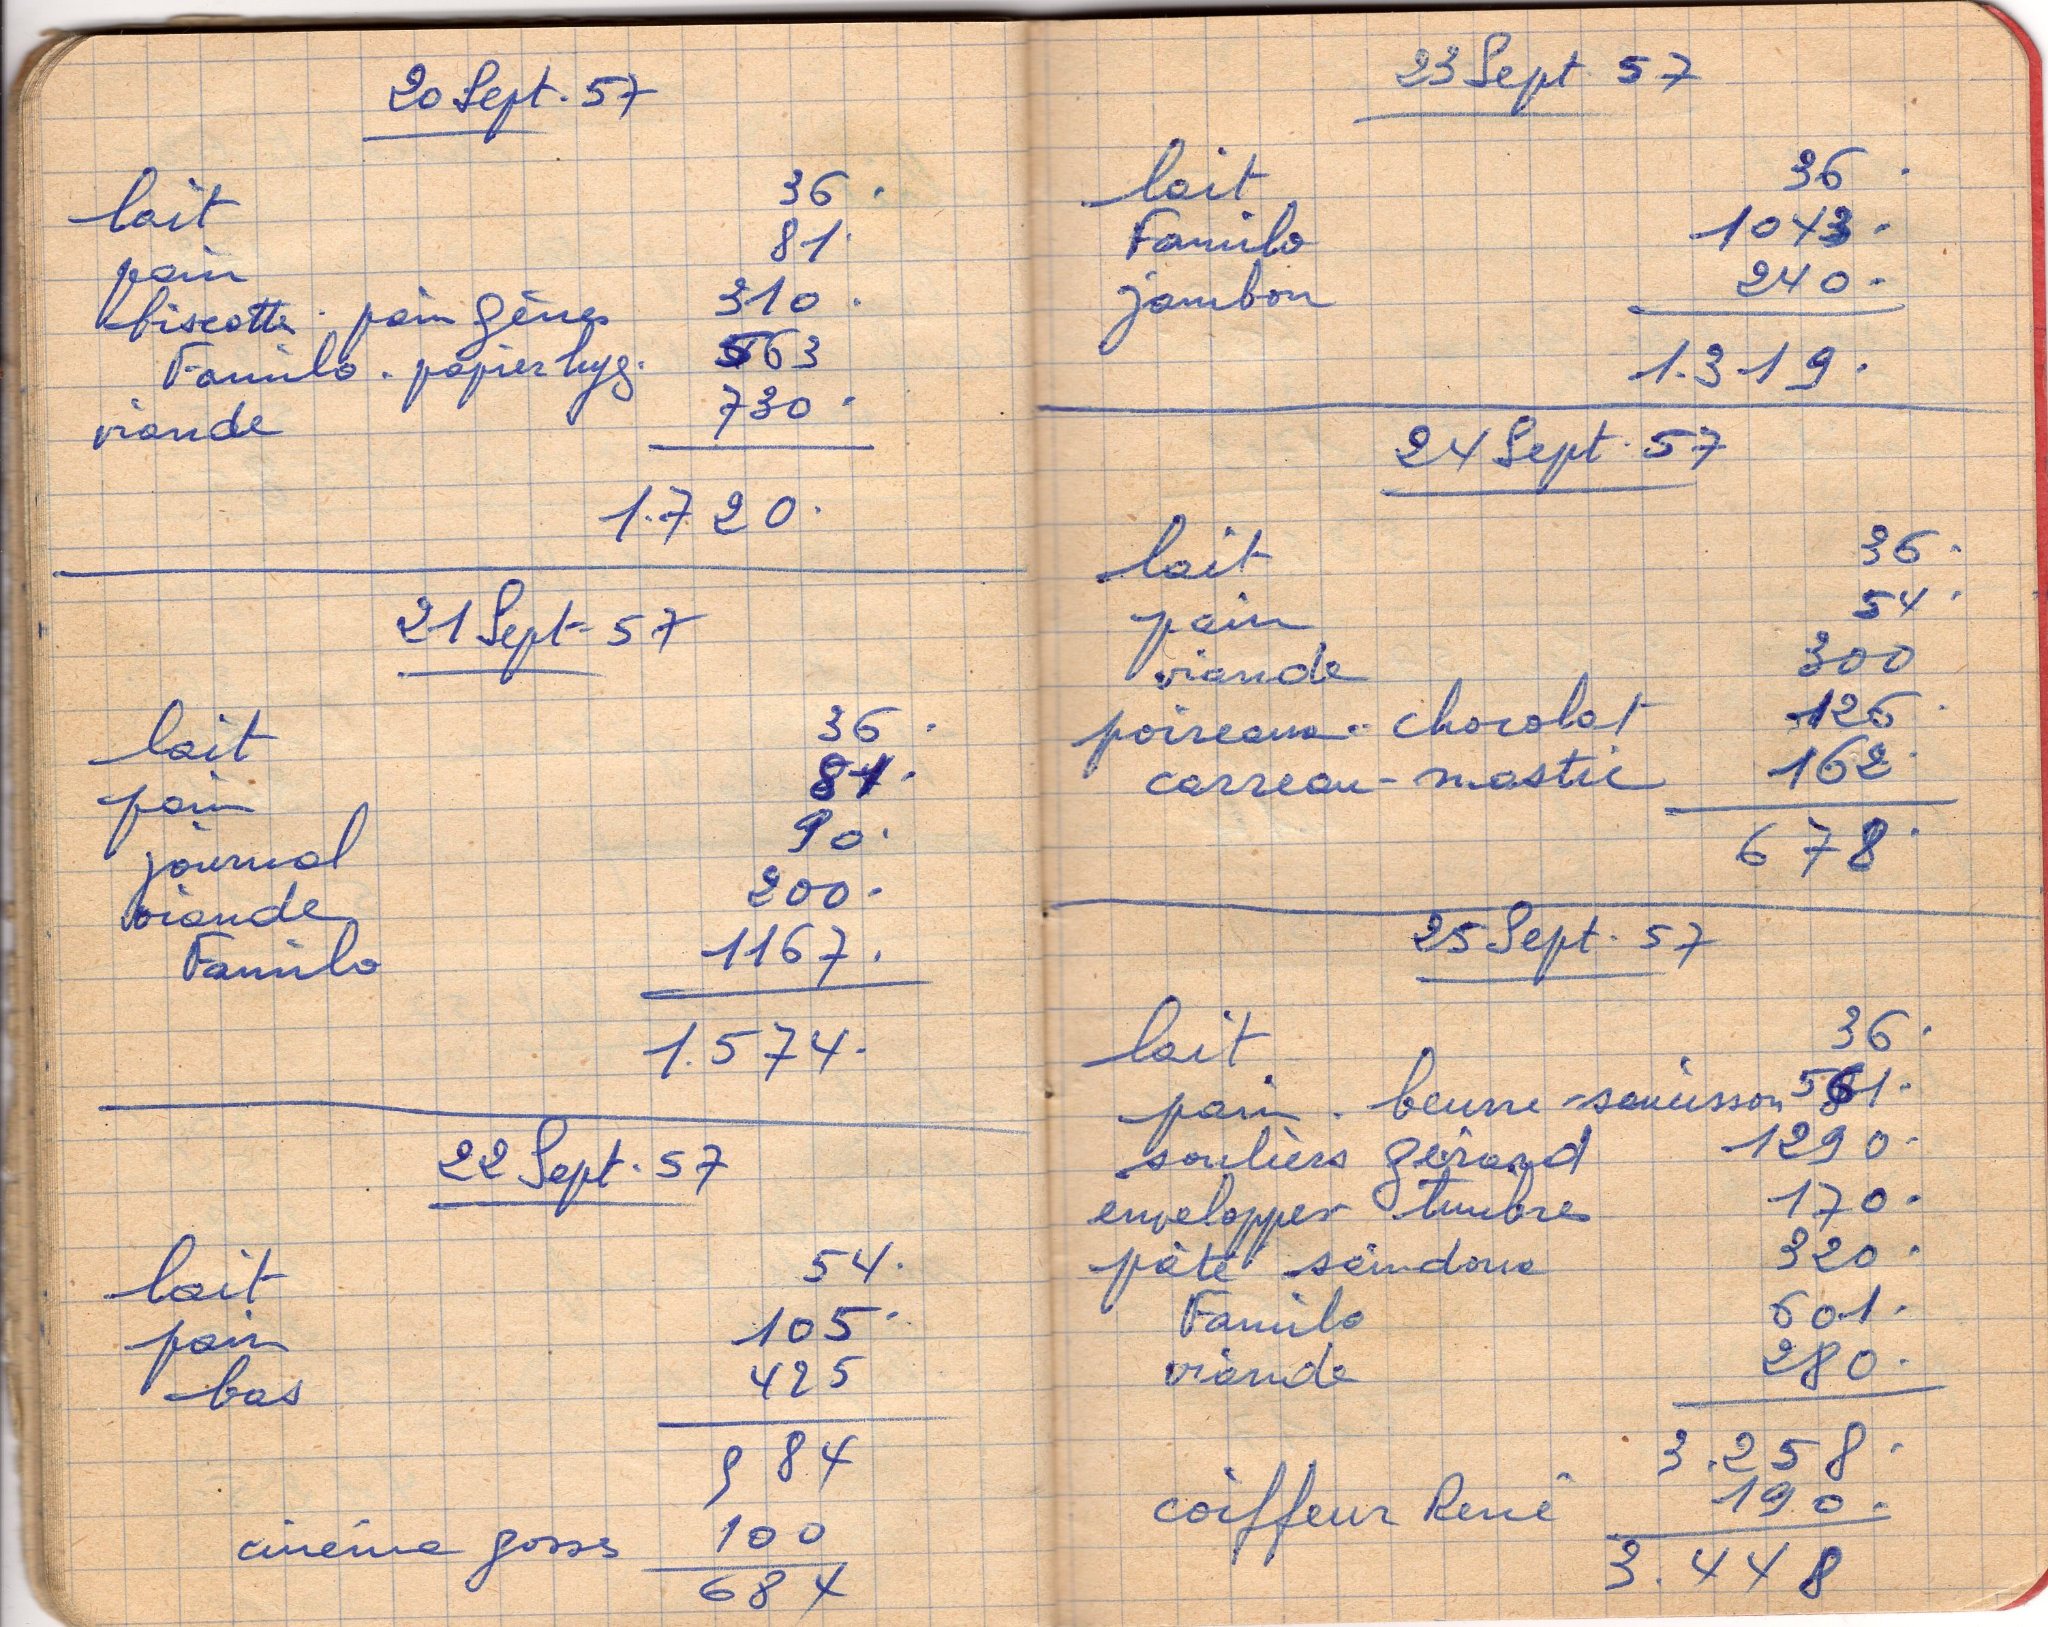 20 Sept. 57
lait 36.
pain 81.
biscotte. pain Gênes 310.
Familo. papier hyg. 563
viande 730.
1.720.
21 Sept. 57
lait 36.
pain 81.
journal 90.
viande 200.
Familo 1167.
1.574.
22 Sept. 57
lait 54.
pain 105.
bas 425
984
cinéma gosses 100
684
23 Sept 57
lait 36.
Familo 1043.
jambon 240.
1.319.
24 Sept. 57
lait 36.
pain 54.
viande 300
poireaux - chocolat 126.
carreau - mastic 162.
678.
25 Sept. 57
lait 36.
pain. beurre - saucisson 561.
souliers Gérard 1290.
enveloppes timbres 170.
pâté saindoux 320.
Familo 601.
viande 280.
3.258.
coiffeur René 190.
3.448